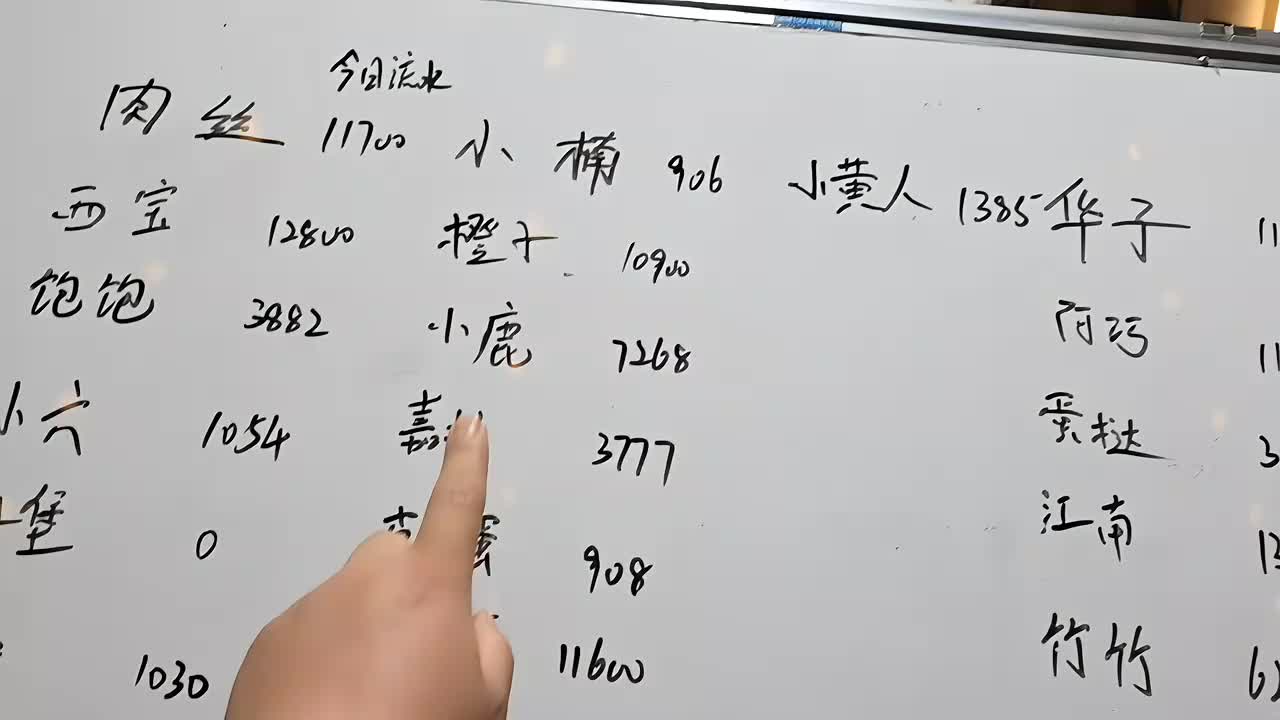 今日流水
肉丝 11700 小楠 906 小黄人 1385 华子
西宝 12800 橙子 10900
饱饱 3882 小鹿 7268
小六 1054 嘉 3777 蛋挞
堡 0 蛋 908 江南
1030 11600 竹竹